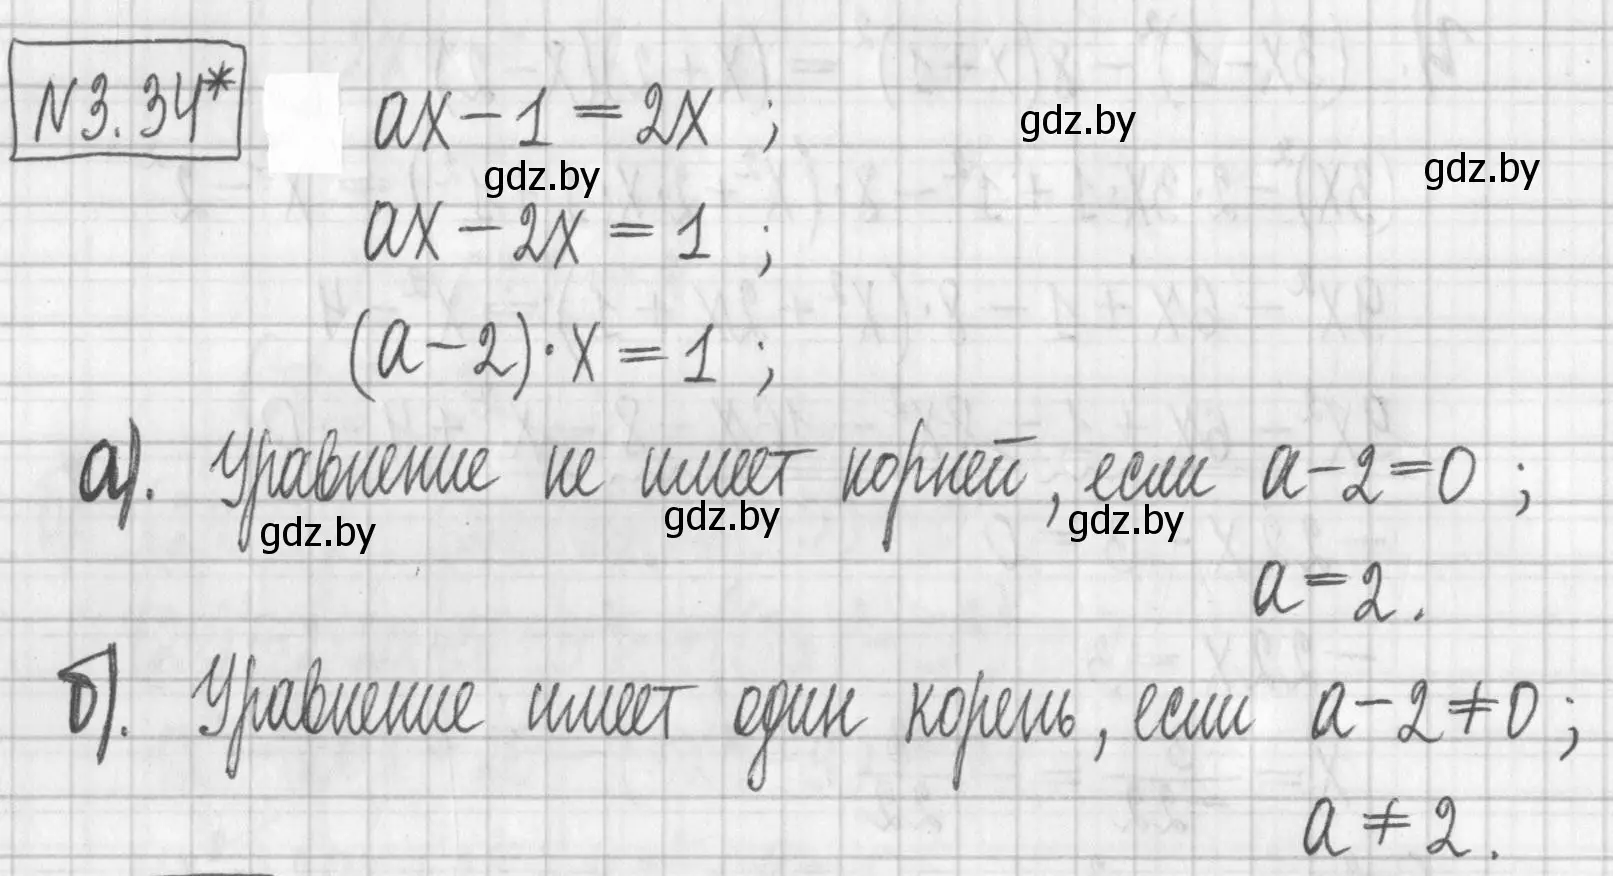 N3.34* ax - 1 = 2x ;
gdz.by
gdz.by
gdz.by
ax - 2x = 1 ;
(a - 2) · x = 1 ;
а). Уравнение не имеет корней, если a - 2 = 0 ;
gdz.by gdz.by gdz.by
a = 2.
б). Уравнение имеет один корень, если a - 2 ≠ 0 ;
a ≠ 2.